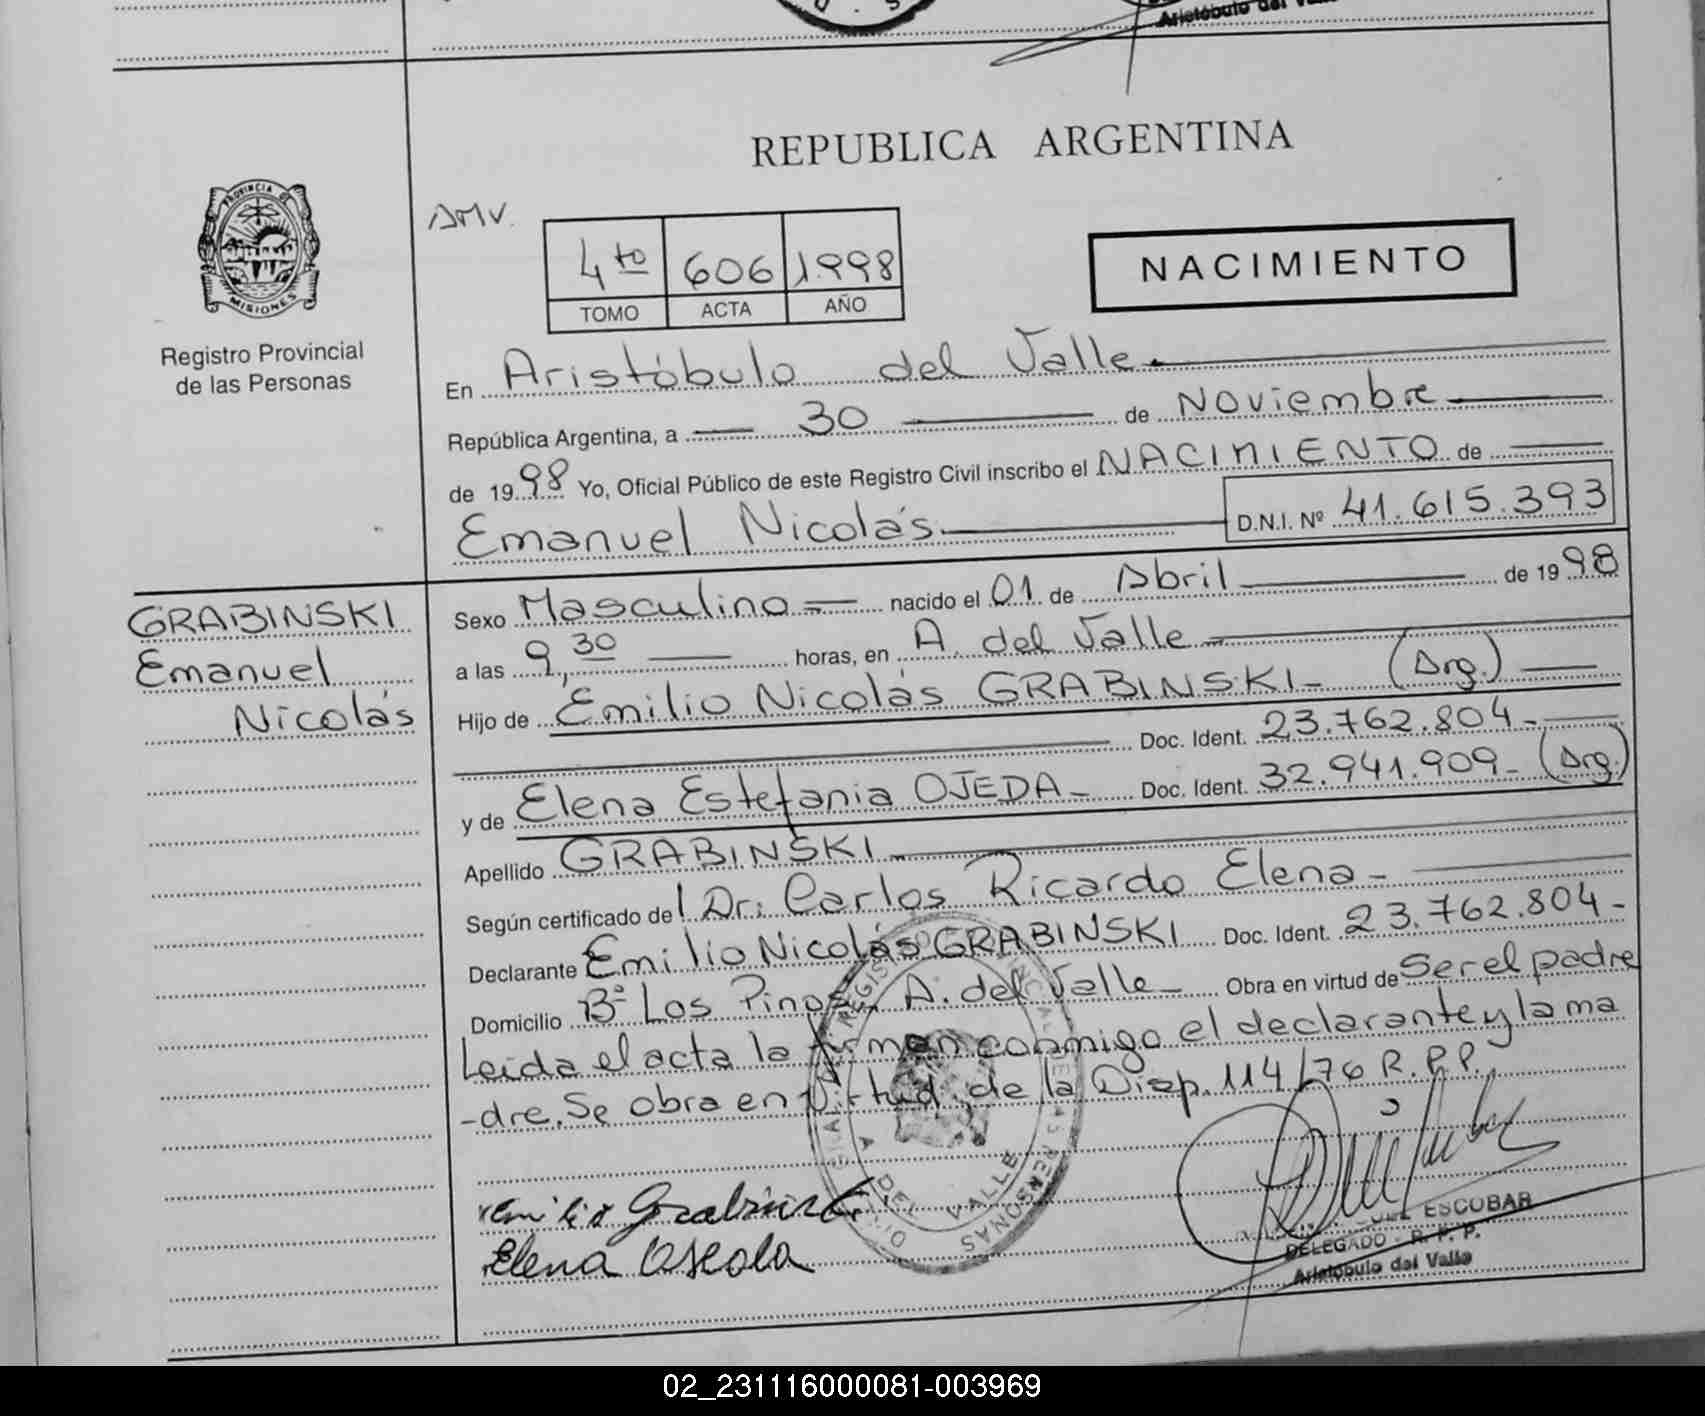 Aristóbulo del Valle
REPUBLICA ARGENTINA
PROVINCIA DE
MISIONES
Registro Provincial
de las Personas
AMV.
4to 606 1998
TOMO ACTA AÑO
NACIMIENTO
En Aristóbulo del Valle
República Argentina, a 30 de Noviembre
de 1998 Yo, Oficial Público de este Registro Civil inscribo el NACIMIENTO de
Emanuel Nicolás D.N.I. Nº 41.615.393
GRABINSKI
Emanuel
Nicolás
Sexo Masculino nacido el 01 de Abril de 1998
a las 9,30 horas, en A. del Valle
Hijo de Emilio Nicolás GRABINSKI (Arg.)
Doc. Ident. 23.762.804
y de Elena Estefania OJEDA Doc. Ident. 32.941.909 (Arg.)
Apellido GRABINSKI
Según certificado del Dr: Carlos Ricardo Elena
Declarante Emilio Nicolás GRABINSKI Doc. Ident. 23.762.804
Domicilio Bº Los Pinos, A. del Valle Obra en virtud de Ser el padre
Leída el acta la firman conmigo el declarante y la ma
-dre. Se obra en virtud de la Disp. 114/76 R.P.P.
Emilio Grabinski
Elena
A DEL VALLE
PERSONAS
ESCOBAR
DELEGADO - R. P. P.
Aristóbulo del Valle
02_231116000081-003969